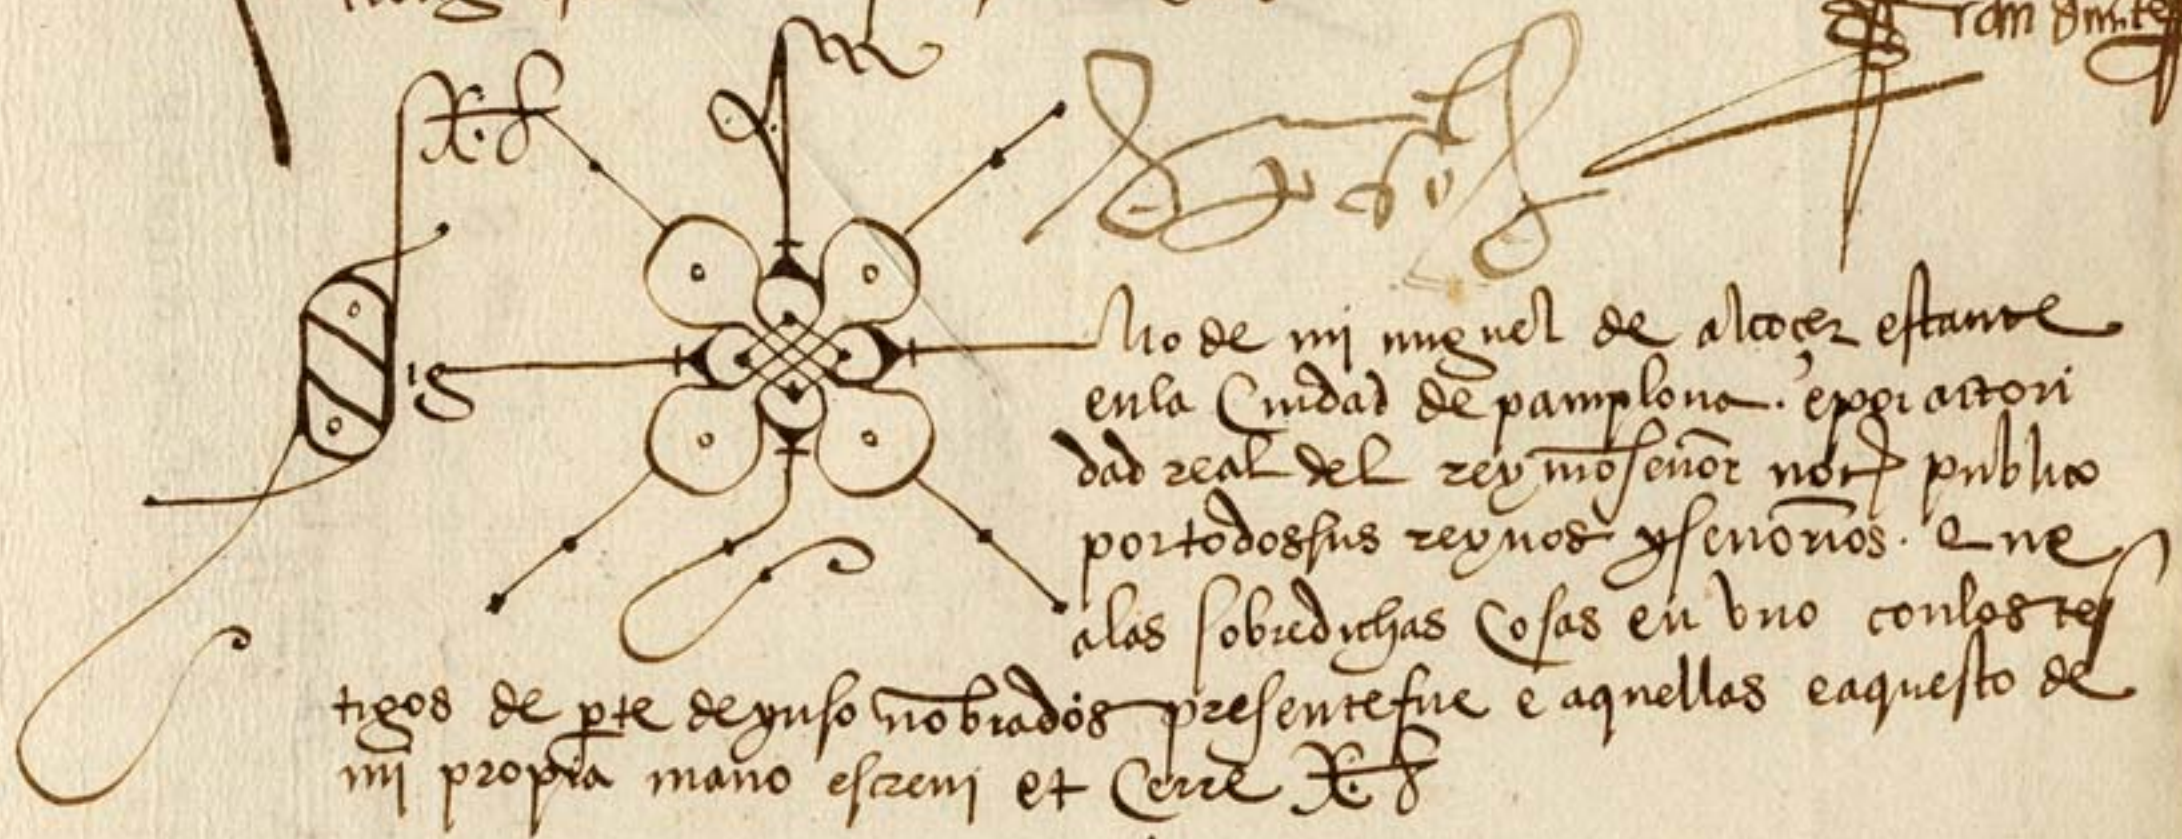 Sig no de mi miguel de alcoçer estante
en la Ciudad de pamplona. e por actori
dad real del rey mo señor not publico
por todos sus reynos y señorios. Que
a las sobredichas Cosas en vno con los tes
tigos de pte de yuso nobrados presente fue e aquellas e aquesto de
mi propia mano escreui et Cerre